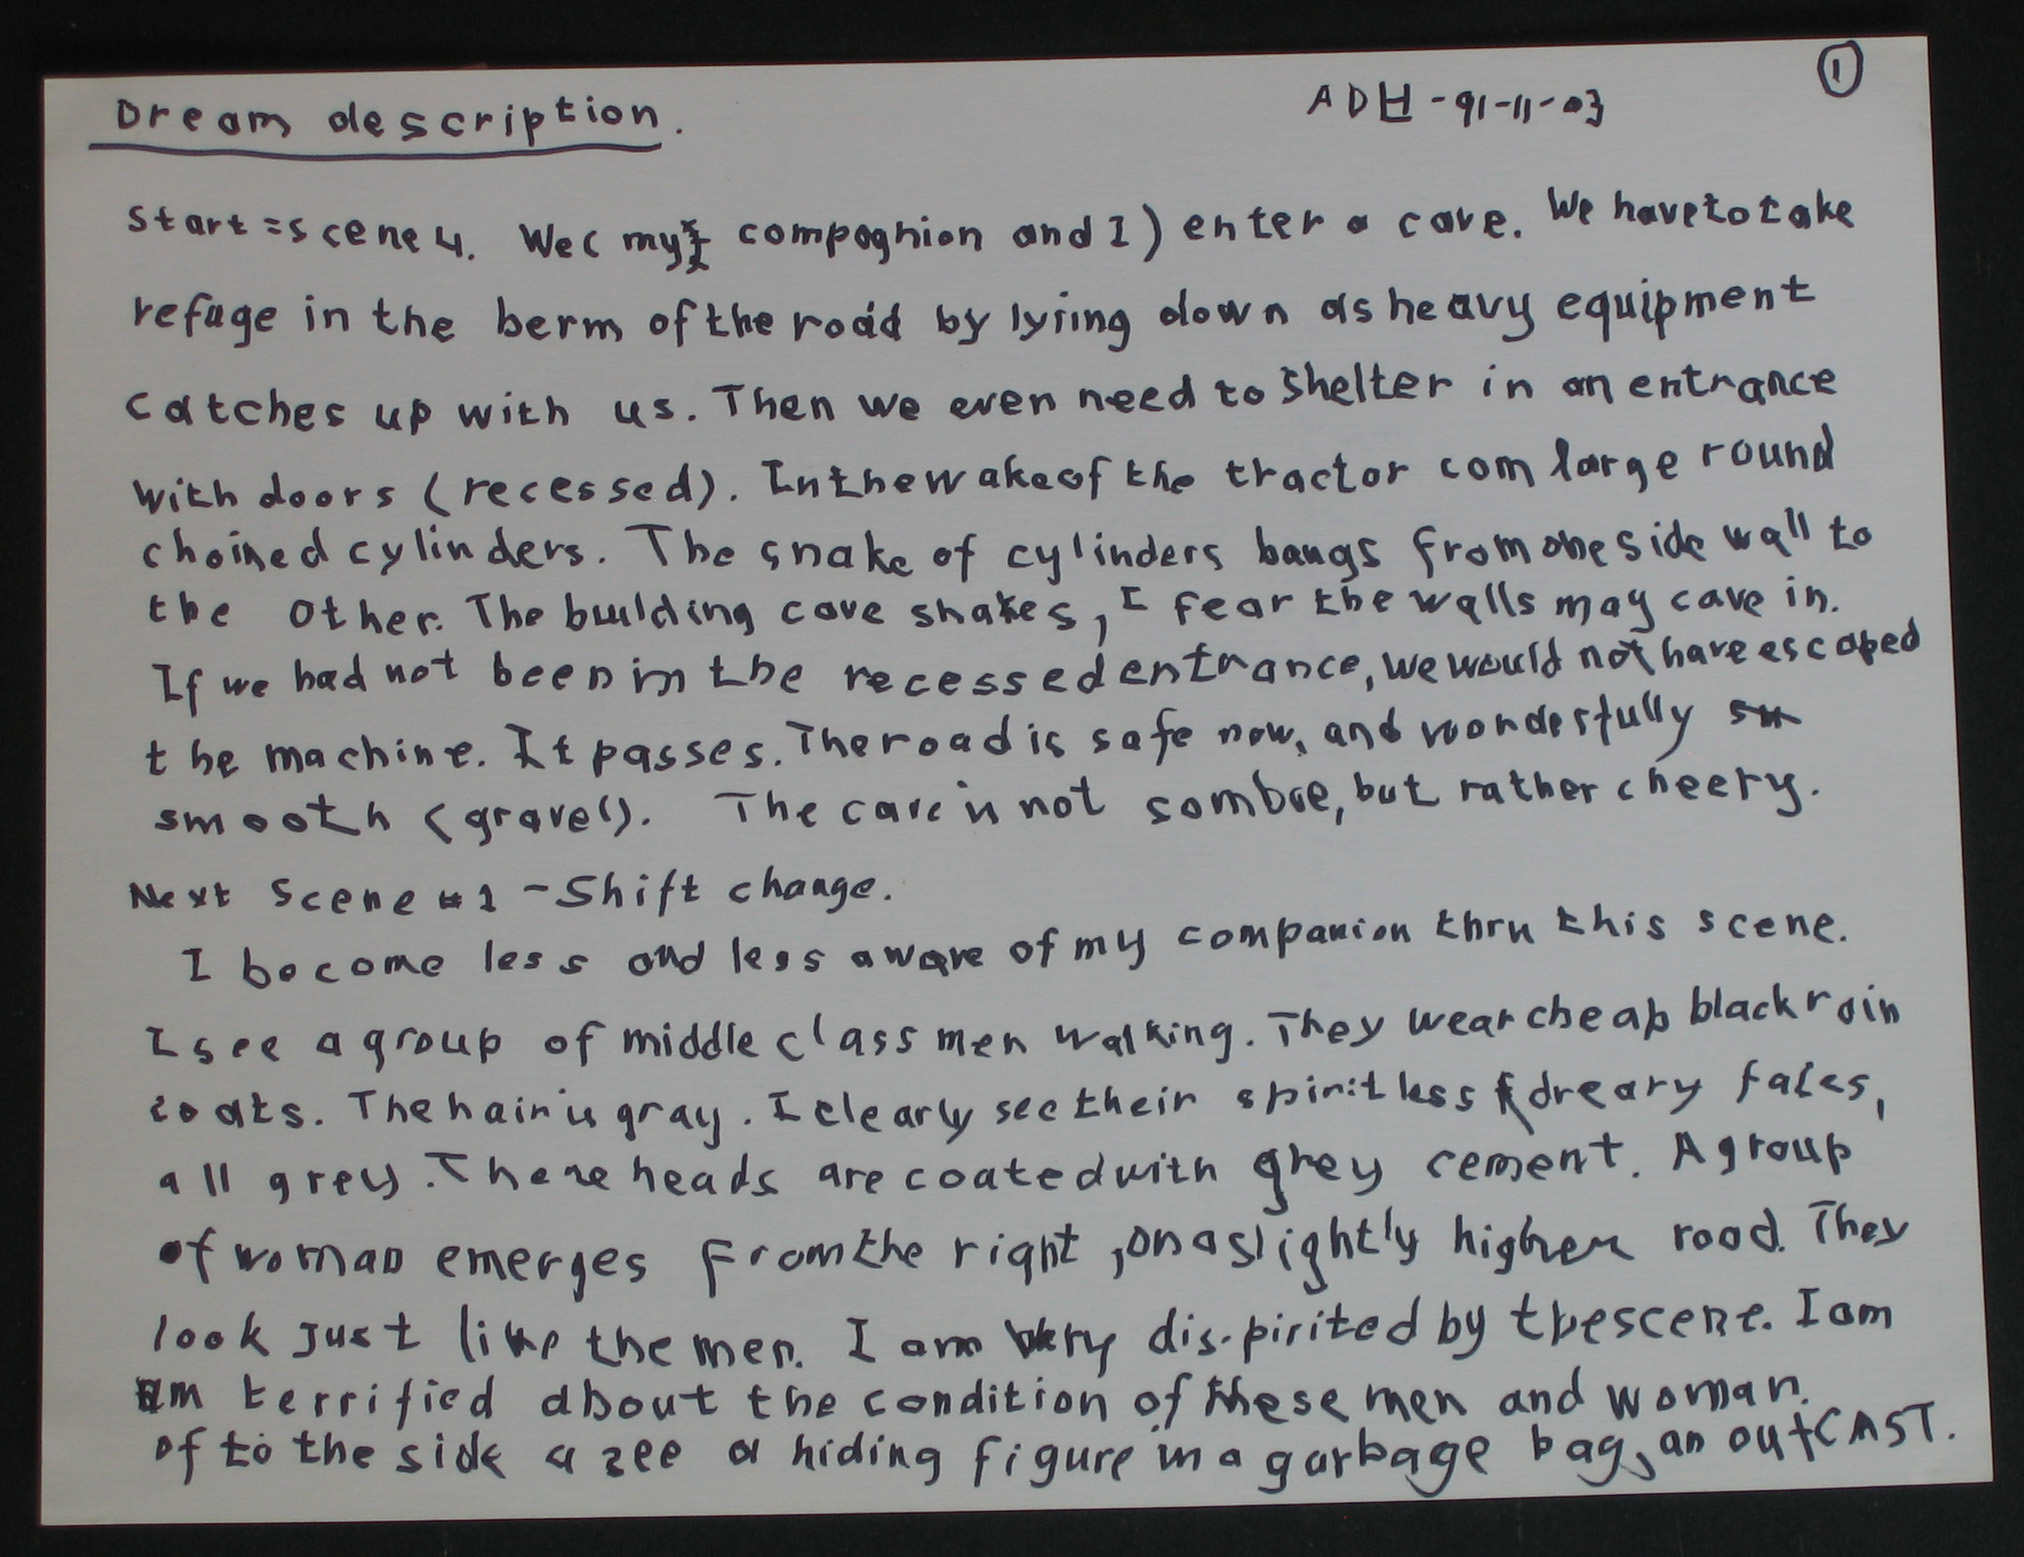 Dream description. ADH-91-11-03 1
Start = scene 4. We ( my compaghion and I ) enter a cave. We have to take
refuge in the berm of the road by lyiing down as heavy equipment
catches up with us. Then we even need to shelter in an entrance
with doors (recessed). In the wake of the tractor com large round
chained cylinders. The snake of cylinders bangs from one side wall to
the other. The building cave shakes, I fear the walls may cave in.
If we had not been in the recessed entrance, we would not have escaped
the machine. It passes. The road is safe now, and wonderfully
smooth (gravel). The cave is not sombre, but rather cheery.
Next Scene #1 - Shift change.
I become less and less aware of my companion thru this scene.
I see a group of middle class men walking. They wear cheap black rain
coats. The hair is gray. I clearly see their spiritless & dreary faces,
all grey. There heads are coated with grey cement. A group
of woman emerges from the right, on a slightly higher road. They
look just like the men. I am very dis-pirited by the scene. I am
am terrified about the condition of these men and woman.
of to the side a zee a hiding figure in a garbage bag, an outCAST.